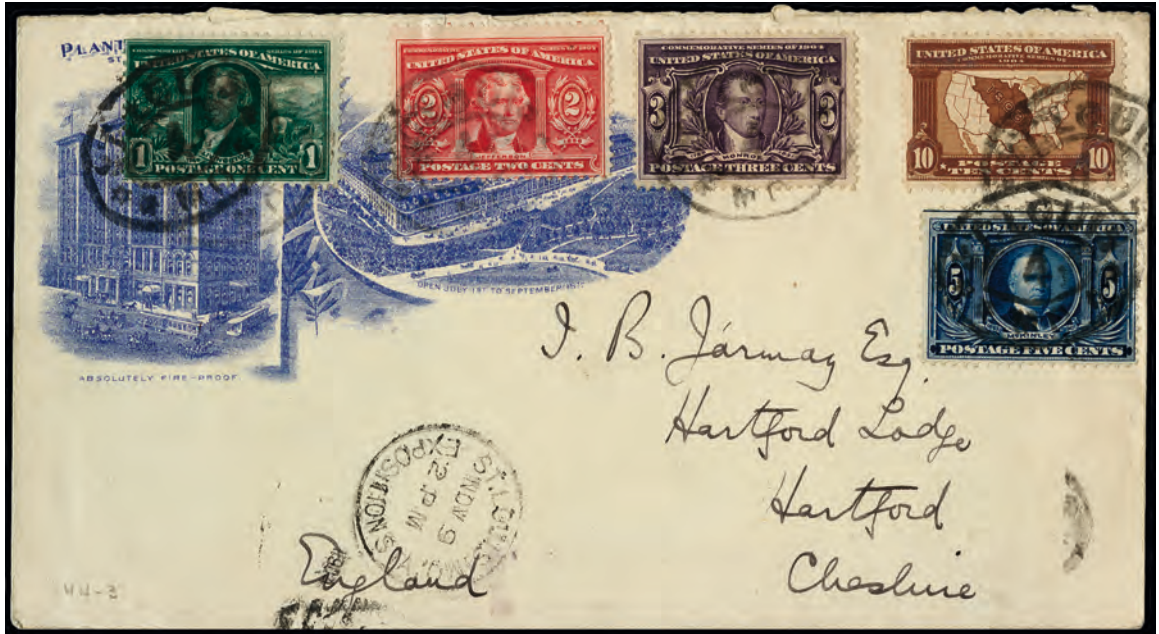 PLANT
ST.
UNITED STATES OF AMERICA
1 1
POSTAGE ONE CENT
COMMEMORATIVE SERIES OF 1904
UNITED STATES OF AMERICA
2 2
JEFFERSON
POSTAGE TWO CENTS
COMMEMORATIVE SERIES OF 1904
UNITED STATES OF AMERICA
3 3
MONROE
POSTAGE THREE CENTS
UNITED STATES OF AMERICA
COMMEMORATIVE SERIES OF
1904
10 10
POSTAGE
TEN CENTS
UNITED STATES OF AMERICA
5 5
MCKINLEY
POSTAGE FIVE CENTS
OPEN JULY 1ST TO SEPTEMBER
ABSOLUTELY FIRE-PROOF.
J. B. Jármay Esq.
Hartford Lodge
Hartford
Cheshire
England
ST. LOUIS
NOV 9
2 PM
EXPOSITION
44-3